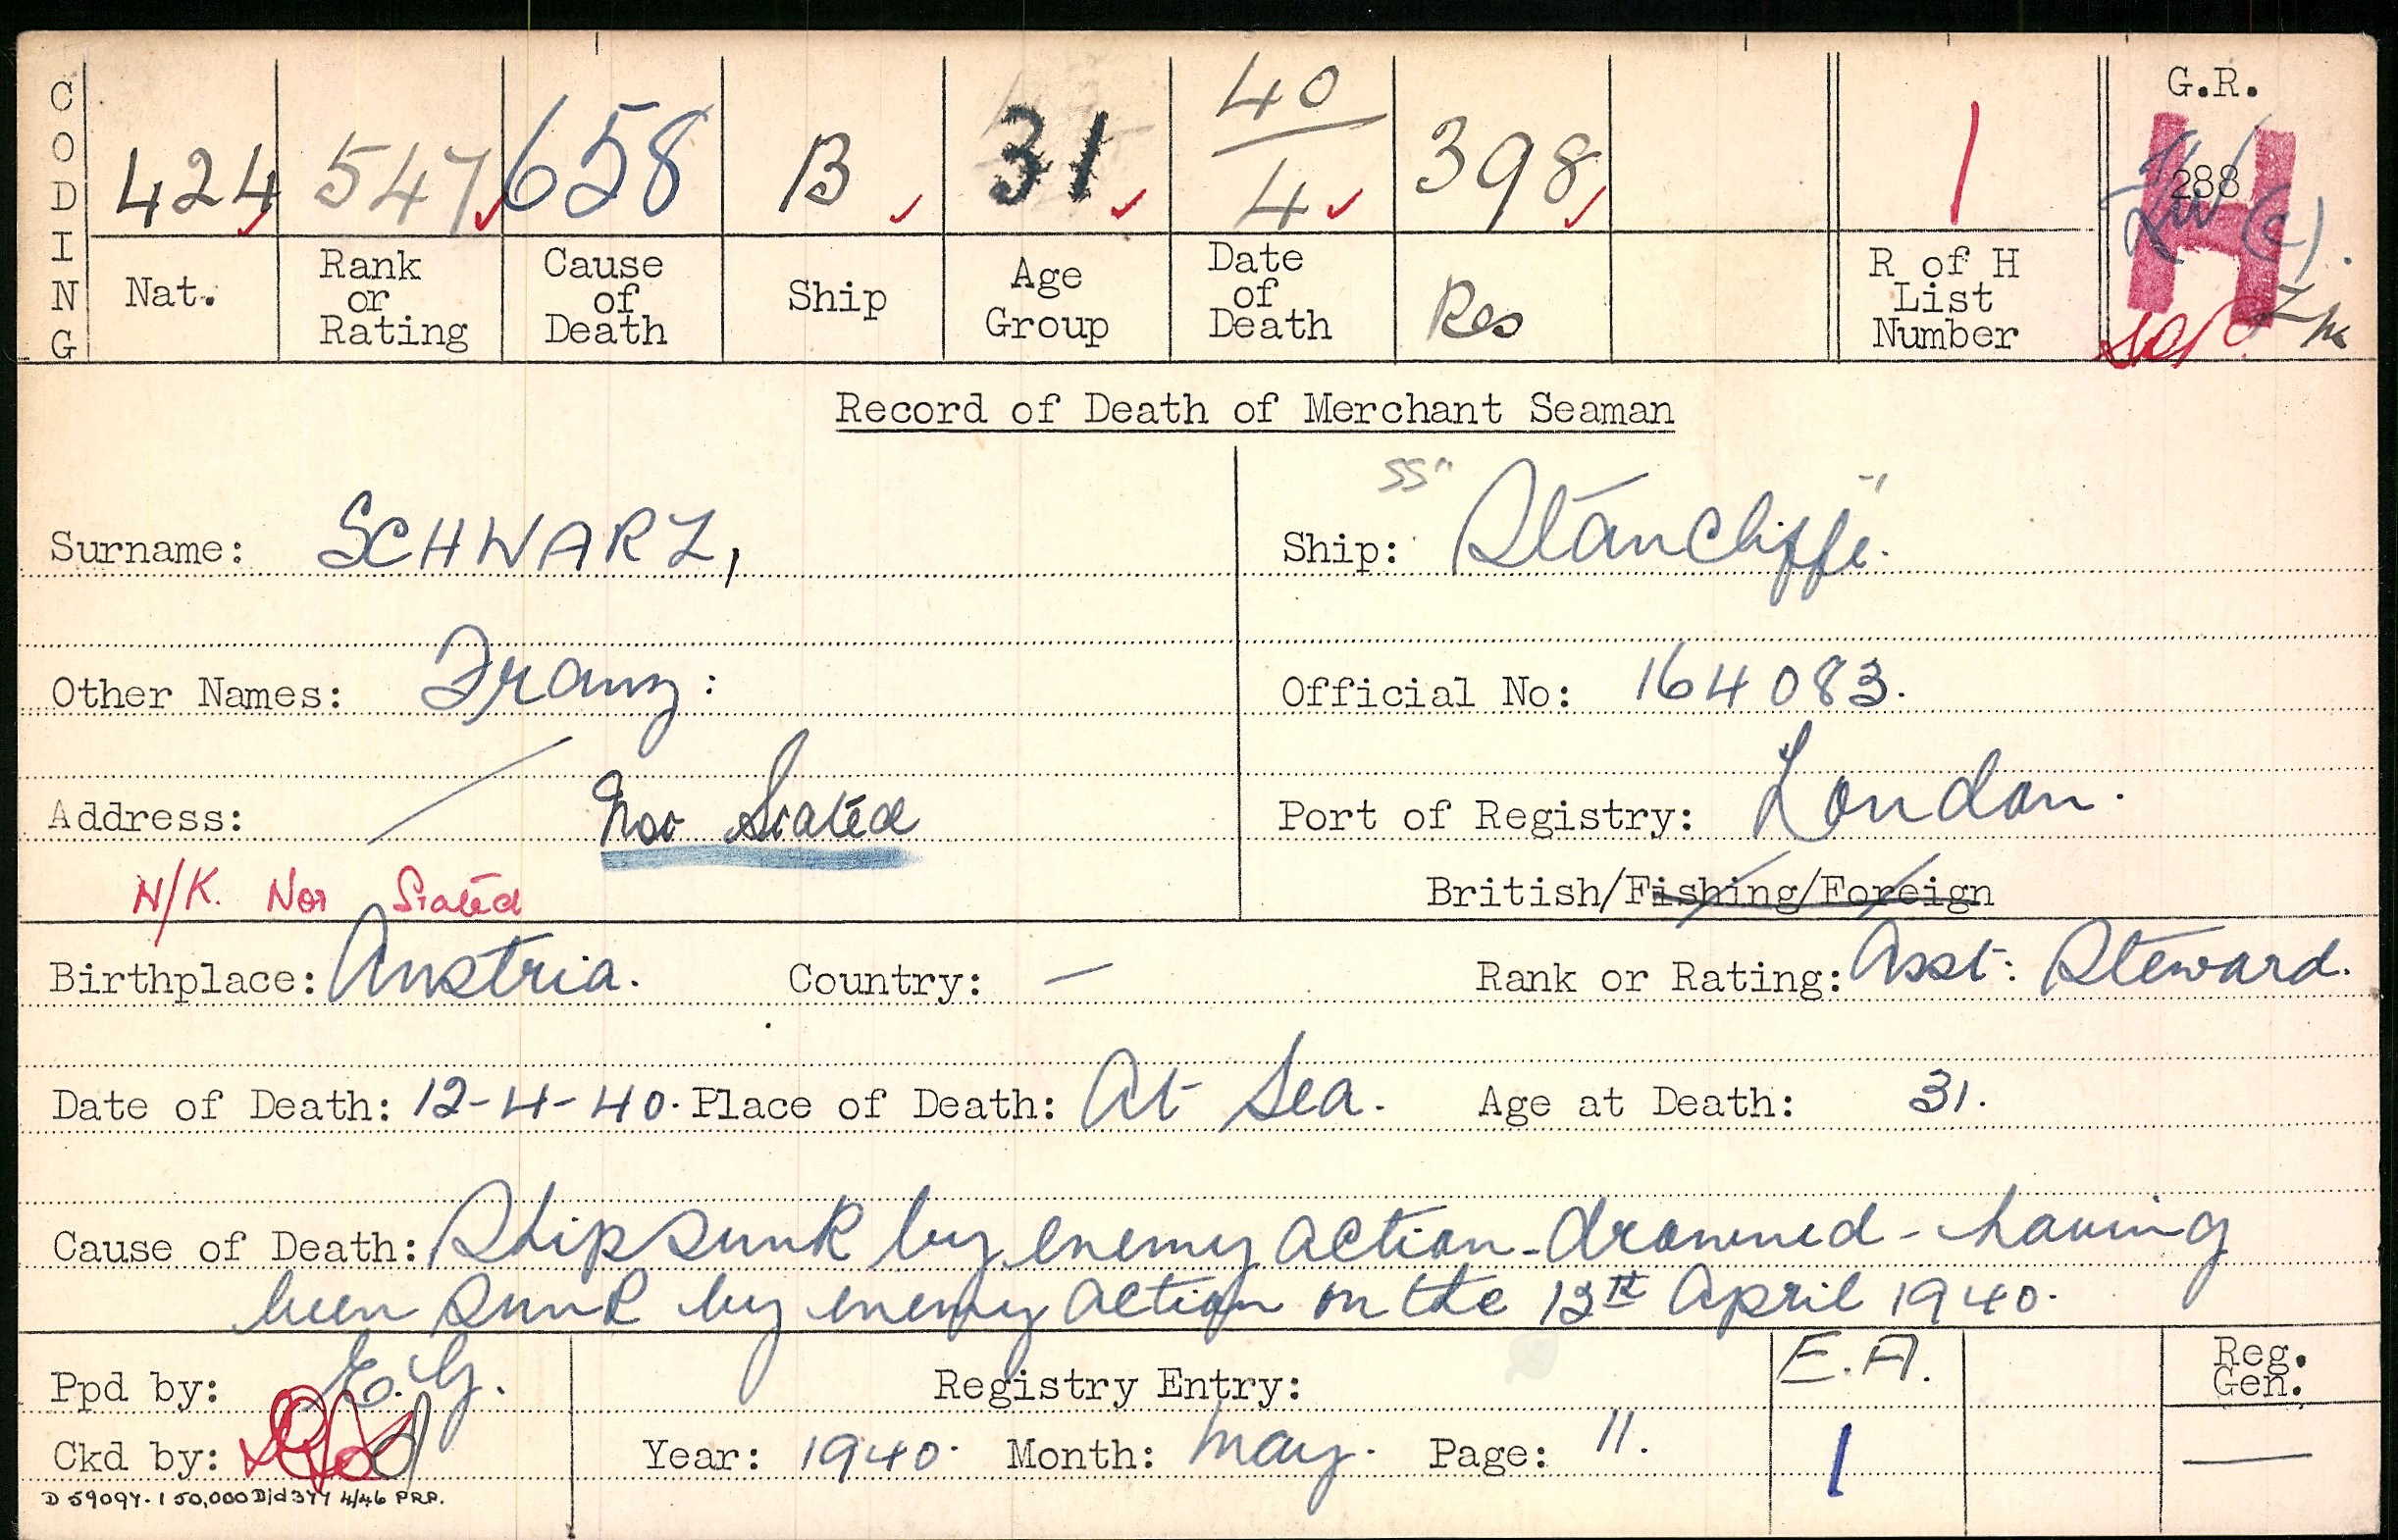 CODING
424 547 658 B 31 40/4 398 1 G.R.
288
H
Nat. Rank or Rating Cause of Death Ship Age Group Date of Death Res R of H List Number
Record of Death of Merchant Seaman
Surname: SCHWARZ, Ship: SS "Stancliffe"
Other Names: Franz: Official No: 164083.
Address: Not Stated Port of Registry: London.
N/K. Not Stated British/Fishing/Foreign
Birthplace: Austria. Country: — Rank or Rating: Asst: Steward.
Date of Death: 12-4-40. Place of Death: At Sea. Age at Death: 31.
Cause of Death: Ship sunk by enemy action - drowned - having
been sunk by enemy action on the 12th April 1940.
Ppd by: E.G. Registry Entry: E.A. Reg. Gen.
Ckd by: Year: 1940. Month: May. Page: 11. 1 —
D 59097. 1 50,000 D/d 377 4/46 P.R.P.